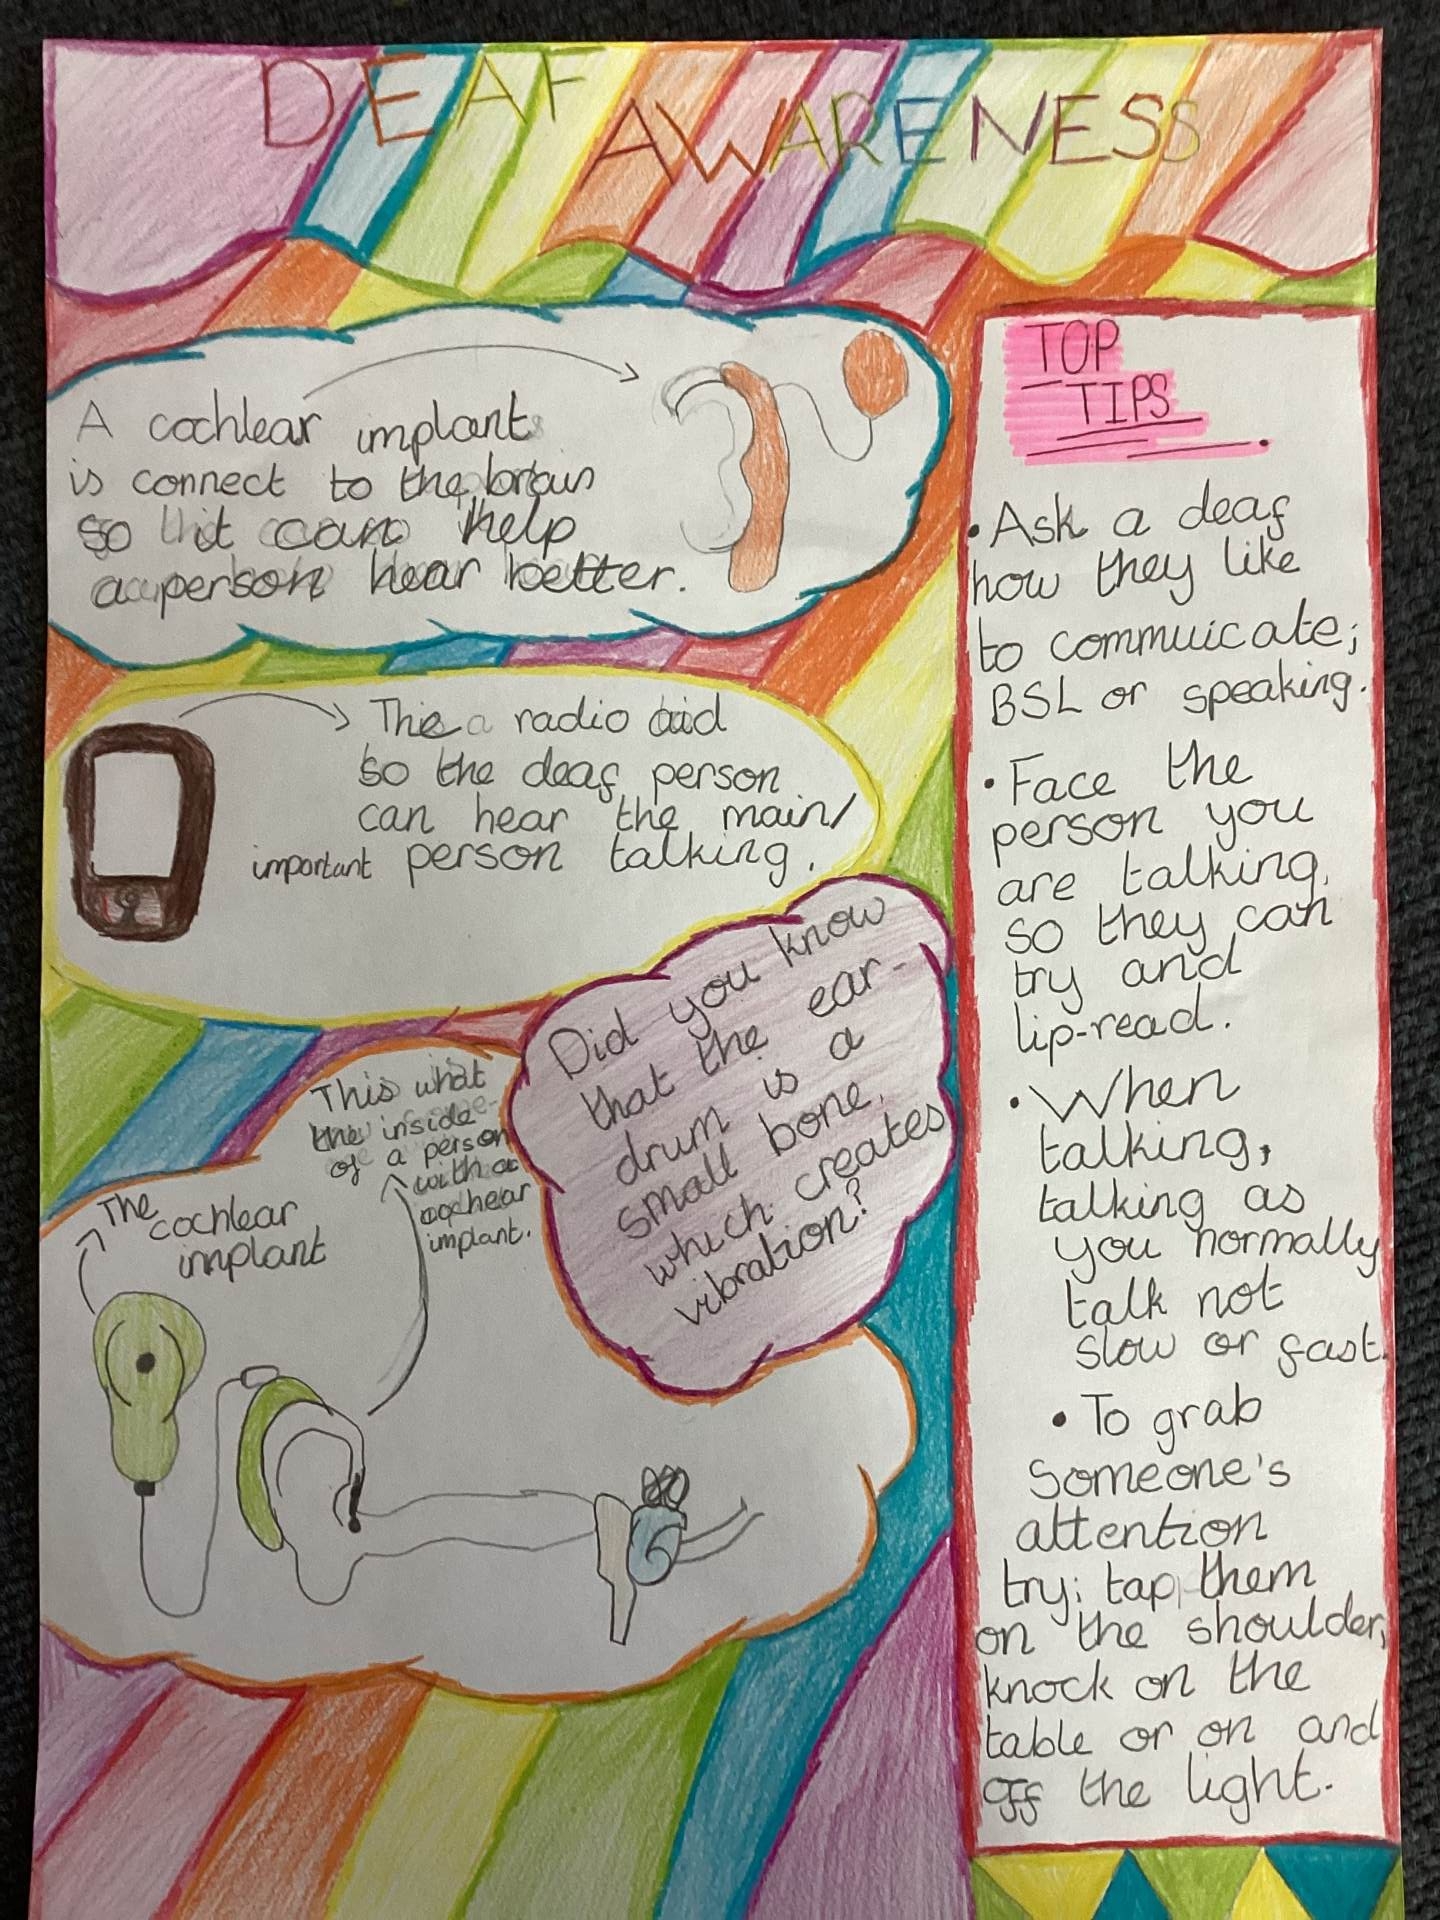 DEAF AWARENESS
A cochlear implant
is connect to the brain
so it can help
a person hear better.
This a radio aid
so the deaf person
can hear the main/
important person talking.
Did you know
that the ear-
drum is a
small bone,
which creates
vibration?
This what
the inside
of a person
with a
cochlear
implant.
The cochlear
implant
TOP
TIPS
• Ask a deaf
how they like
to commuicate;
BSL or speaking.
• Face the
person you
are talking,
so they can
try and
lip-read.
• When
talking,
talking as
you normally
talk not
slow or fast.
• To grab
someone's
attention
try; tap them
on the shoulder,
knock on the
table or on and
off the light.